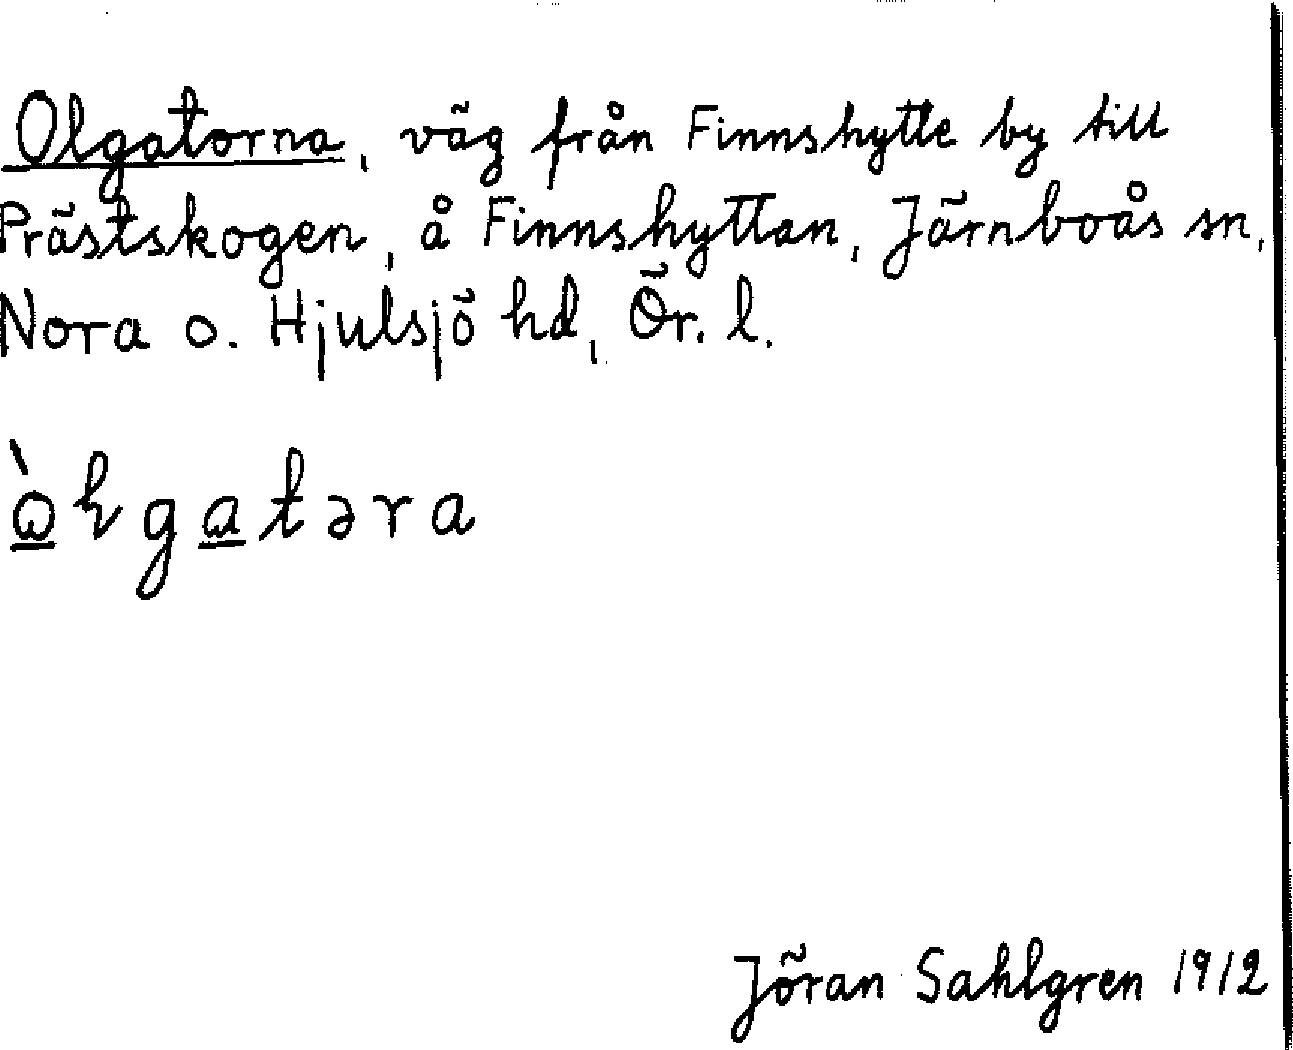 Olgatorna, väg från Finnshytte by till
Prästskogen, å Finnshyttan, Järnboås sn,
Nora o. Hjulsjö hd, Ör. l.
Jöran Sahlgren 1912